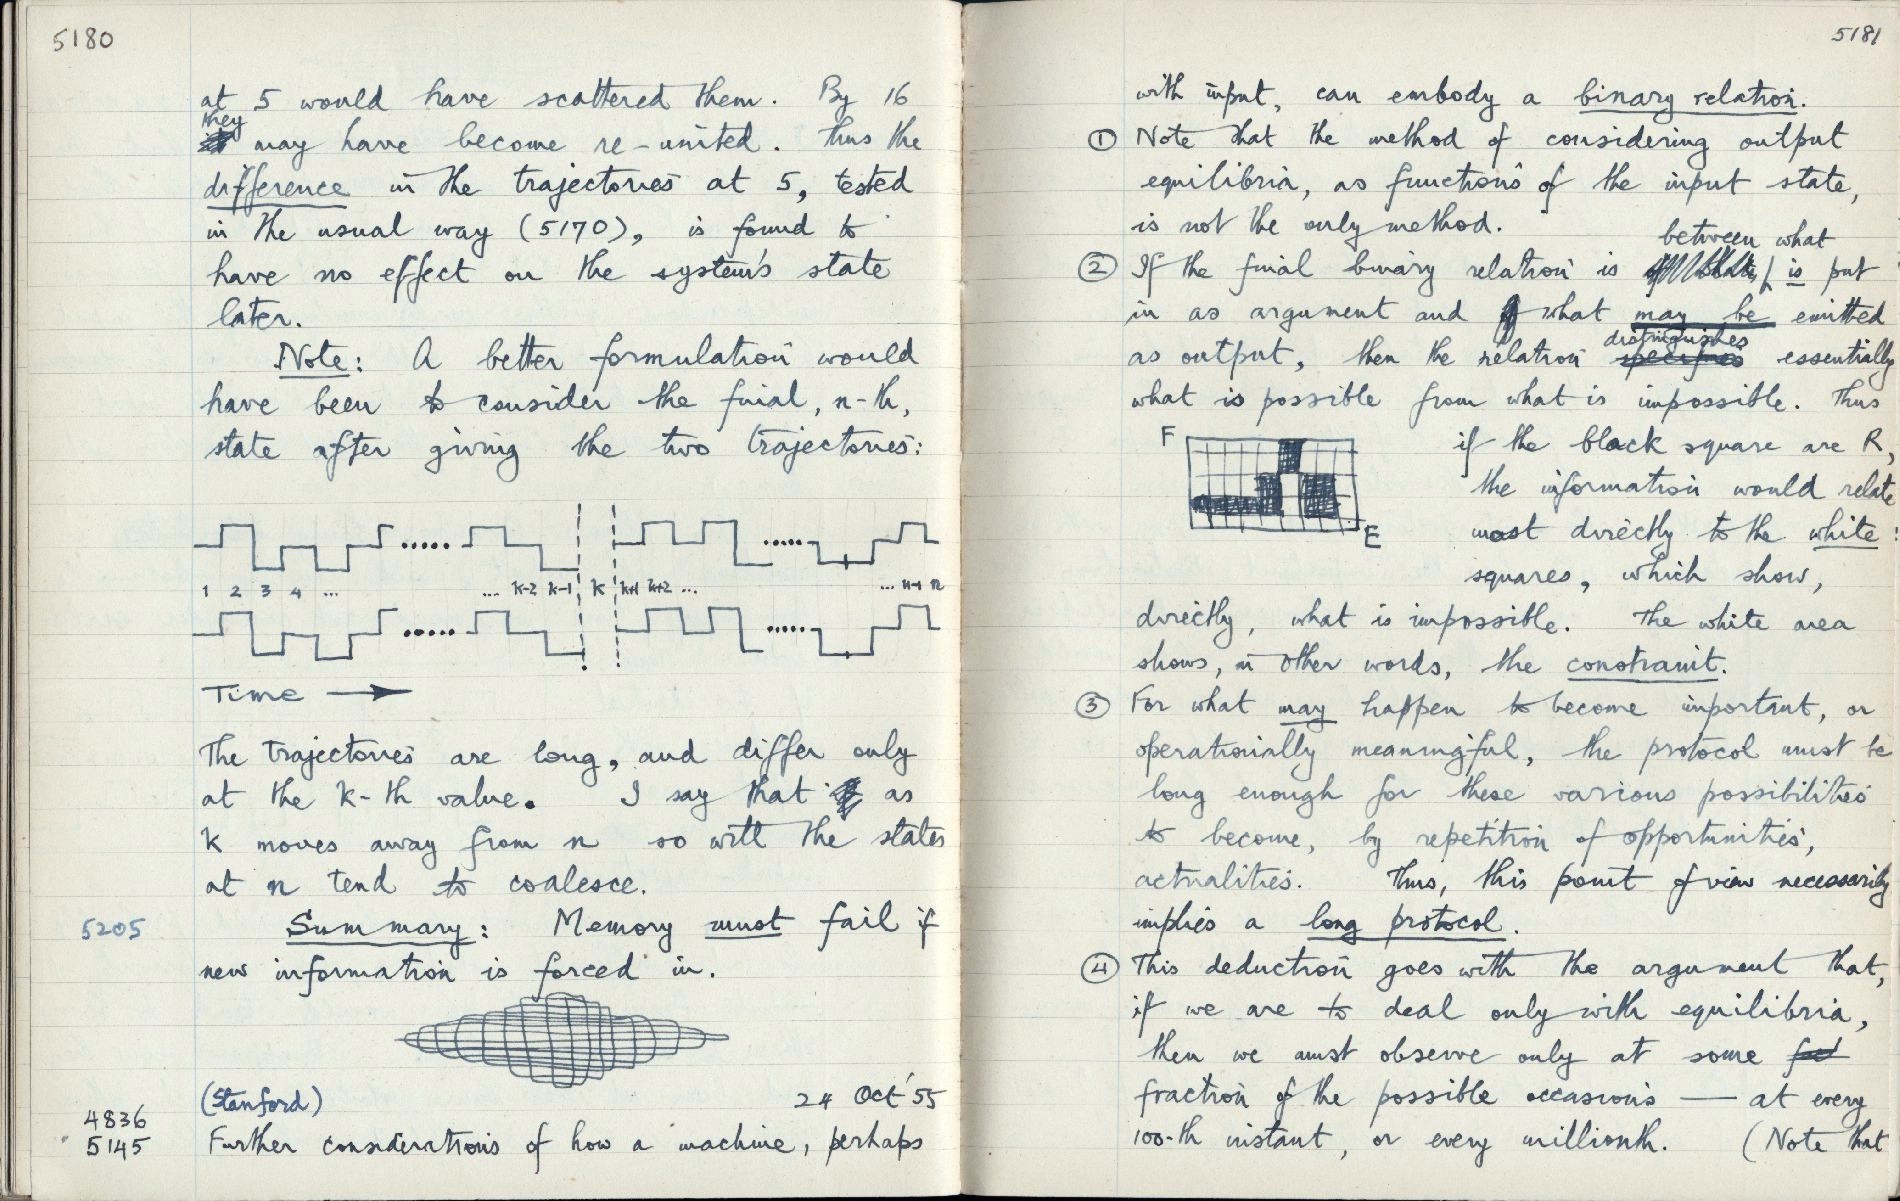 5180
at 5 would have scattered them. By 16
they
may have become re-united. Thus the
difference in the trajectories at 5, tested
in the usual way (5170), is found to
have no effect on the system's state
later.
Note: A better formulation would
have been to consider the final, n-th,
state after giving the two trajectories:
1 2 3 4 ... ... k-2 k-1 k k+1 k+2 ... ... n-1 n
Time →
The trajectories are long, and differ only
at the k-th value. I say that as
k moves away from n so will the states
at n tend to coalesce.
5205 Summary: Memory must fail if
new information is forced in.
(Stanford) 24 Oct '55
4836
5145 Further considerations of how a machine, perhaps
5181
with input, can embody a binary relation.
① Note that the method of considering output
equilibria, as functions of the input state,
is not the only method.
between what
② If the final binary relation is is put
in as argument and what may be emitted
distinguishes
as output, then the relation specifies essentially
what is possible from what is impossible. Thus
F if the black square are R,
the information would relate
E most directly to the white
squares, which show,
directly, what is impossible. The white area
shows, in other words, the constraint.
③ For what may happen to become important, or
operationally meaningful, the protocol must be
long enough for these various possibilities
to become, by repetition of opportunities,
actualities. Thus, this point of view necessarily
implies a long protocol.
④ This deduction goes with the argument that,
if we are to deal only with equilibria,
then we must observe only at some
fraction of the possible occasions — at every
100-th instant, or every millionth. (Note that